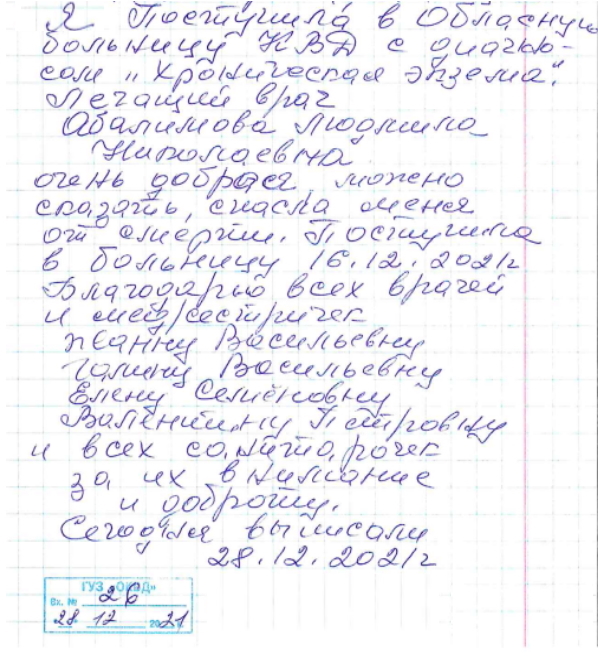 Я Поступила в Обласную
больницу КВД с диагно-
сом „Хроническая экзема".
Лечащий врач
Абалимова Людмила
Николаевна
очень добрая, можно
сказать, спасла меня
от смерти. Поступила
в больницу 16.12.2021г
Благодарю всех врачей
и мед/сестричек
Жанну Васильевну
Галину Васильевну
Елену Семёновну
Валентину Петровну
и всех санитарочек
за их внимание
и доброту.
Сегодня выписали
28.12.2021г
ГУЗ „ОКВД»
Вх. № 26
28 12 2021